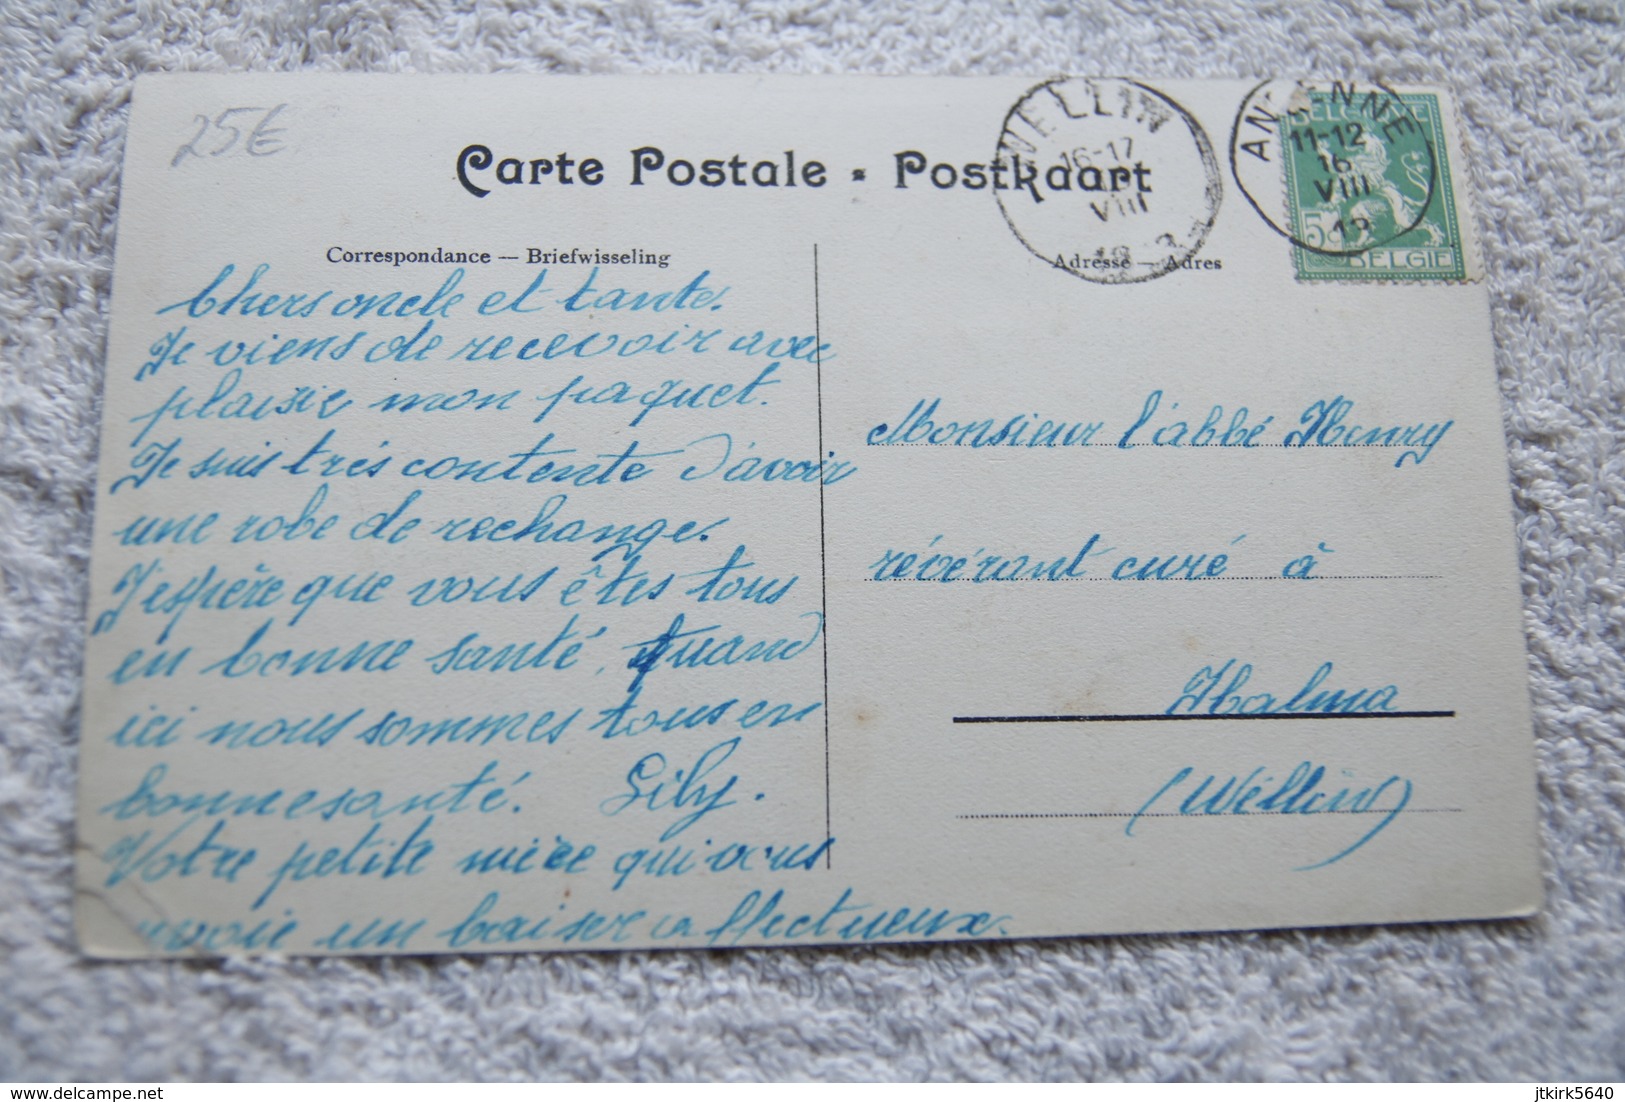 25€
Carte Postale Postkaart
WELLIN
16-17
VIII
ANDENNE
11-12
16
VIII
13
BELGIQUE
5
BELGIE
Correspondance — Briefwisseling
Adresse — Adres
Chers oncle et tante.
Je viens de recevoir avec
plaisir mon paquet.
Je suis très contente d'avoir
une robe de rechange.
J'espère que vous êtes tous
en bonne santé. Quand
ici nous sommes tous en
bonne santé. Lily.
Votre petite nièce qui vous
envoie un baiser affectueux.
Monsieur l'abbé Henry
révérant curé à
Halma
(Wellin)
delcampe.net
jtkirk5640